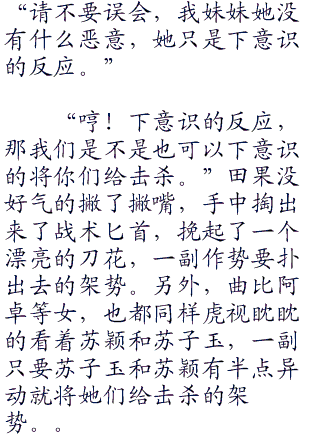 “请不要误会，我妹妹她没
有什么恶意，她只是下意识
的反应。”
“哼！下意识的反应，
那我们是不是也可以下意识
的将你们给击杀。”田果没
好气的撇了撇嘴，手中掏出
来了战术匕首，挽起了一个
漂亮的刀花，一副作势要扑
出去的架势。另外，曲比阿
卓等女，也都同样虎视眈眈
的看着苏颖和苏子玉，一副
只要苏子玉和苏颖有半点异
动就将她们给击杀的架
势。。